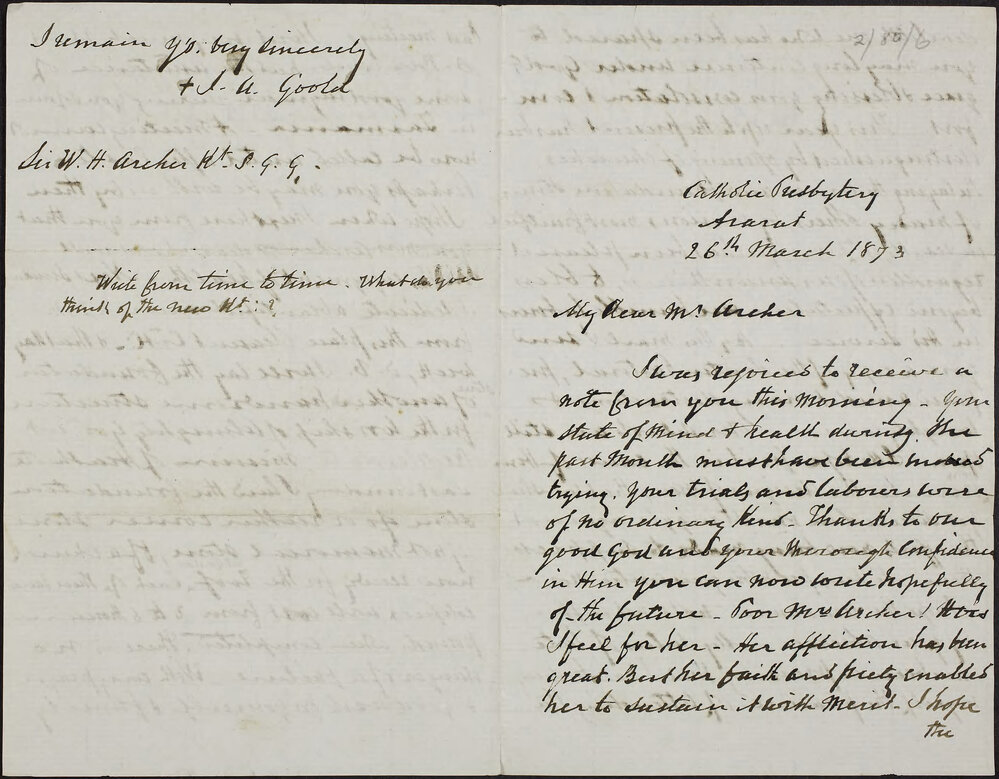 2/80/6
Catholic Presbytery
Ararat
26th March 1873
My Dear Mr Archer
I was rejoiced to receive a
note from you this morning - Your
state of mind & health during the
past month must have been indeed
trying. Your trials and labours were
of no ordinary kind - Thanks to our
good God and your thorough confidence
in Him you can now write hopefully
of the future - Poor Mrs Archer! How
I feel for her - Her affliction has been
great. But her faith and piety enabled
her to sustain it with merit - I hope
the
I remain yo. very sincerely
+ J. A. Goold
Sir W. H. Archer Kt. S. G. G.
Write from time to time. What do you
think of the new Kt.?